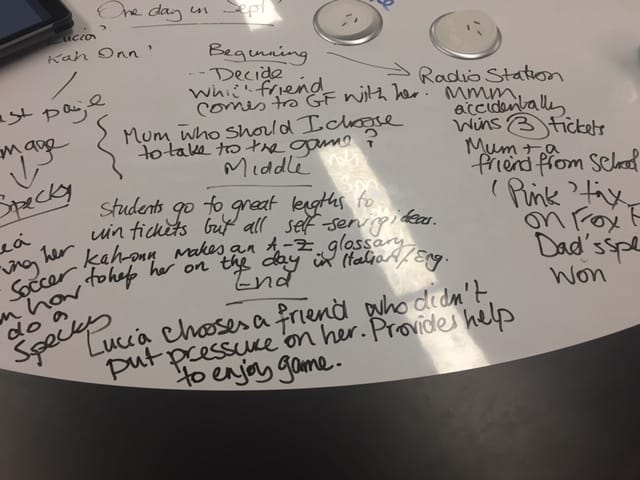 One day in Sept
Lucia
Kah Onn
last page
image
Specky
her
soccer
how
do a
Specky
Beginning
Decide
which friend
comes to GF with her.
Mum who should I choose
to take to the game?
Middle
Students go to great lengths to
win tickets but all self-serving ideas.
Kah-onn makes an A-Z glossary
to help her on the day in Italian/Eng.
End
Lucia chooses a friend who didn't
put pressure on her. Provides help
to enjoy game.
Radio Station
MMM
accidentally
wins 3 tickets
Mum + a
friend from school
'Pink' tix
on Fox
Dad's
won